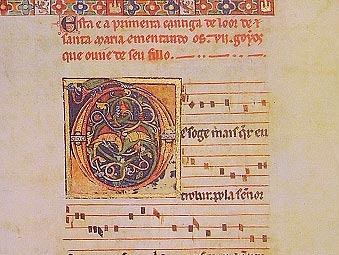 Esta e a primeira cantiga de loor de
santa maria ementando os. vij. goyos
que ouue de seu fillo.
es oge mais qr eu
trobar. pola señor